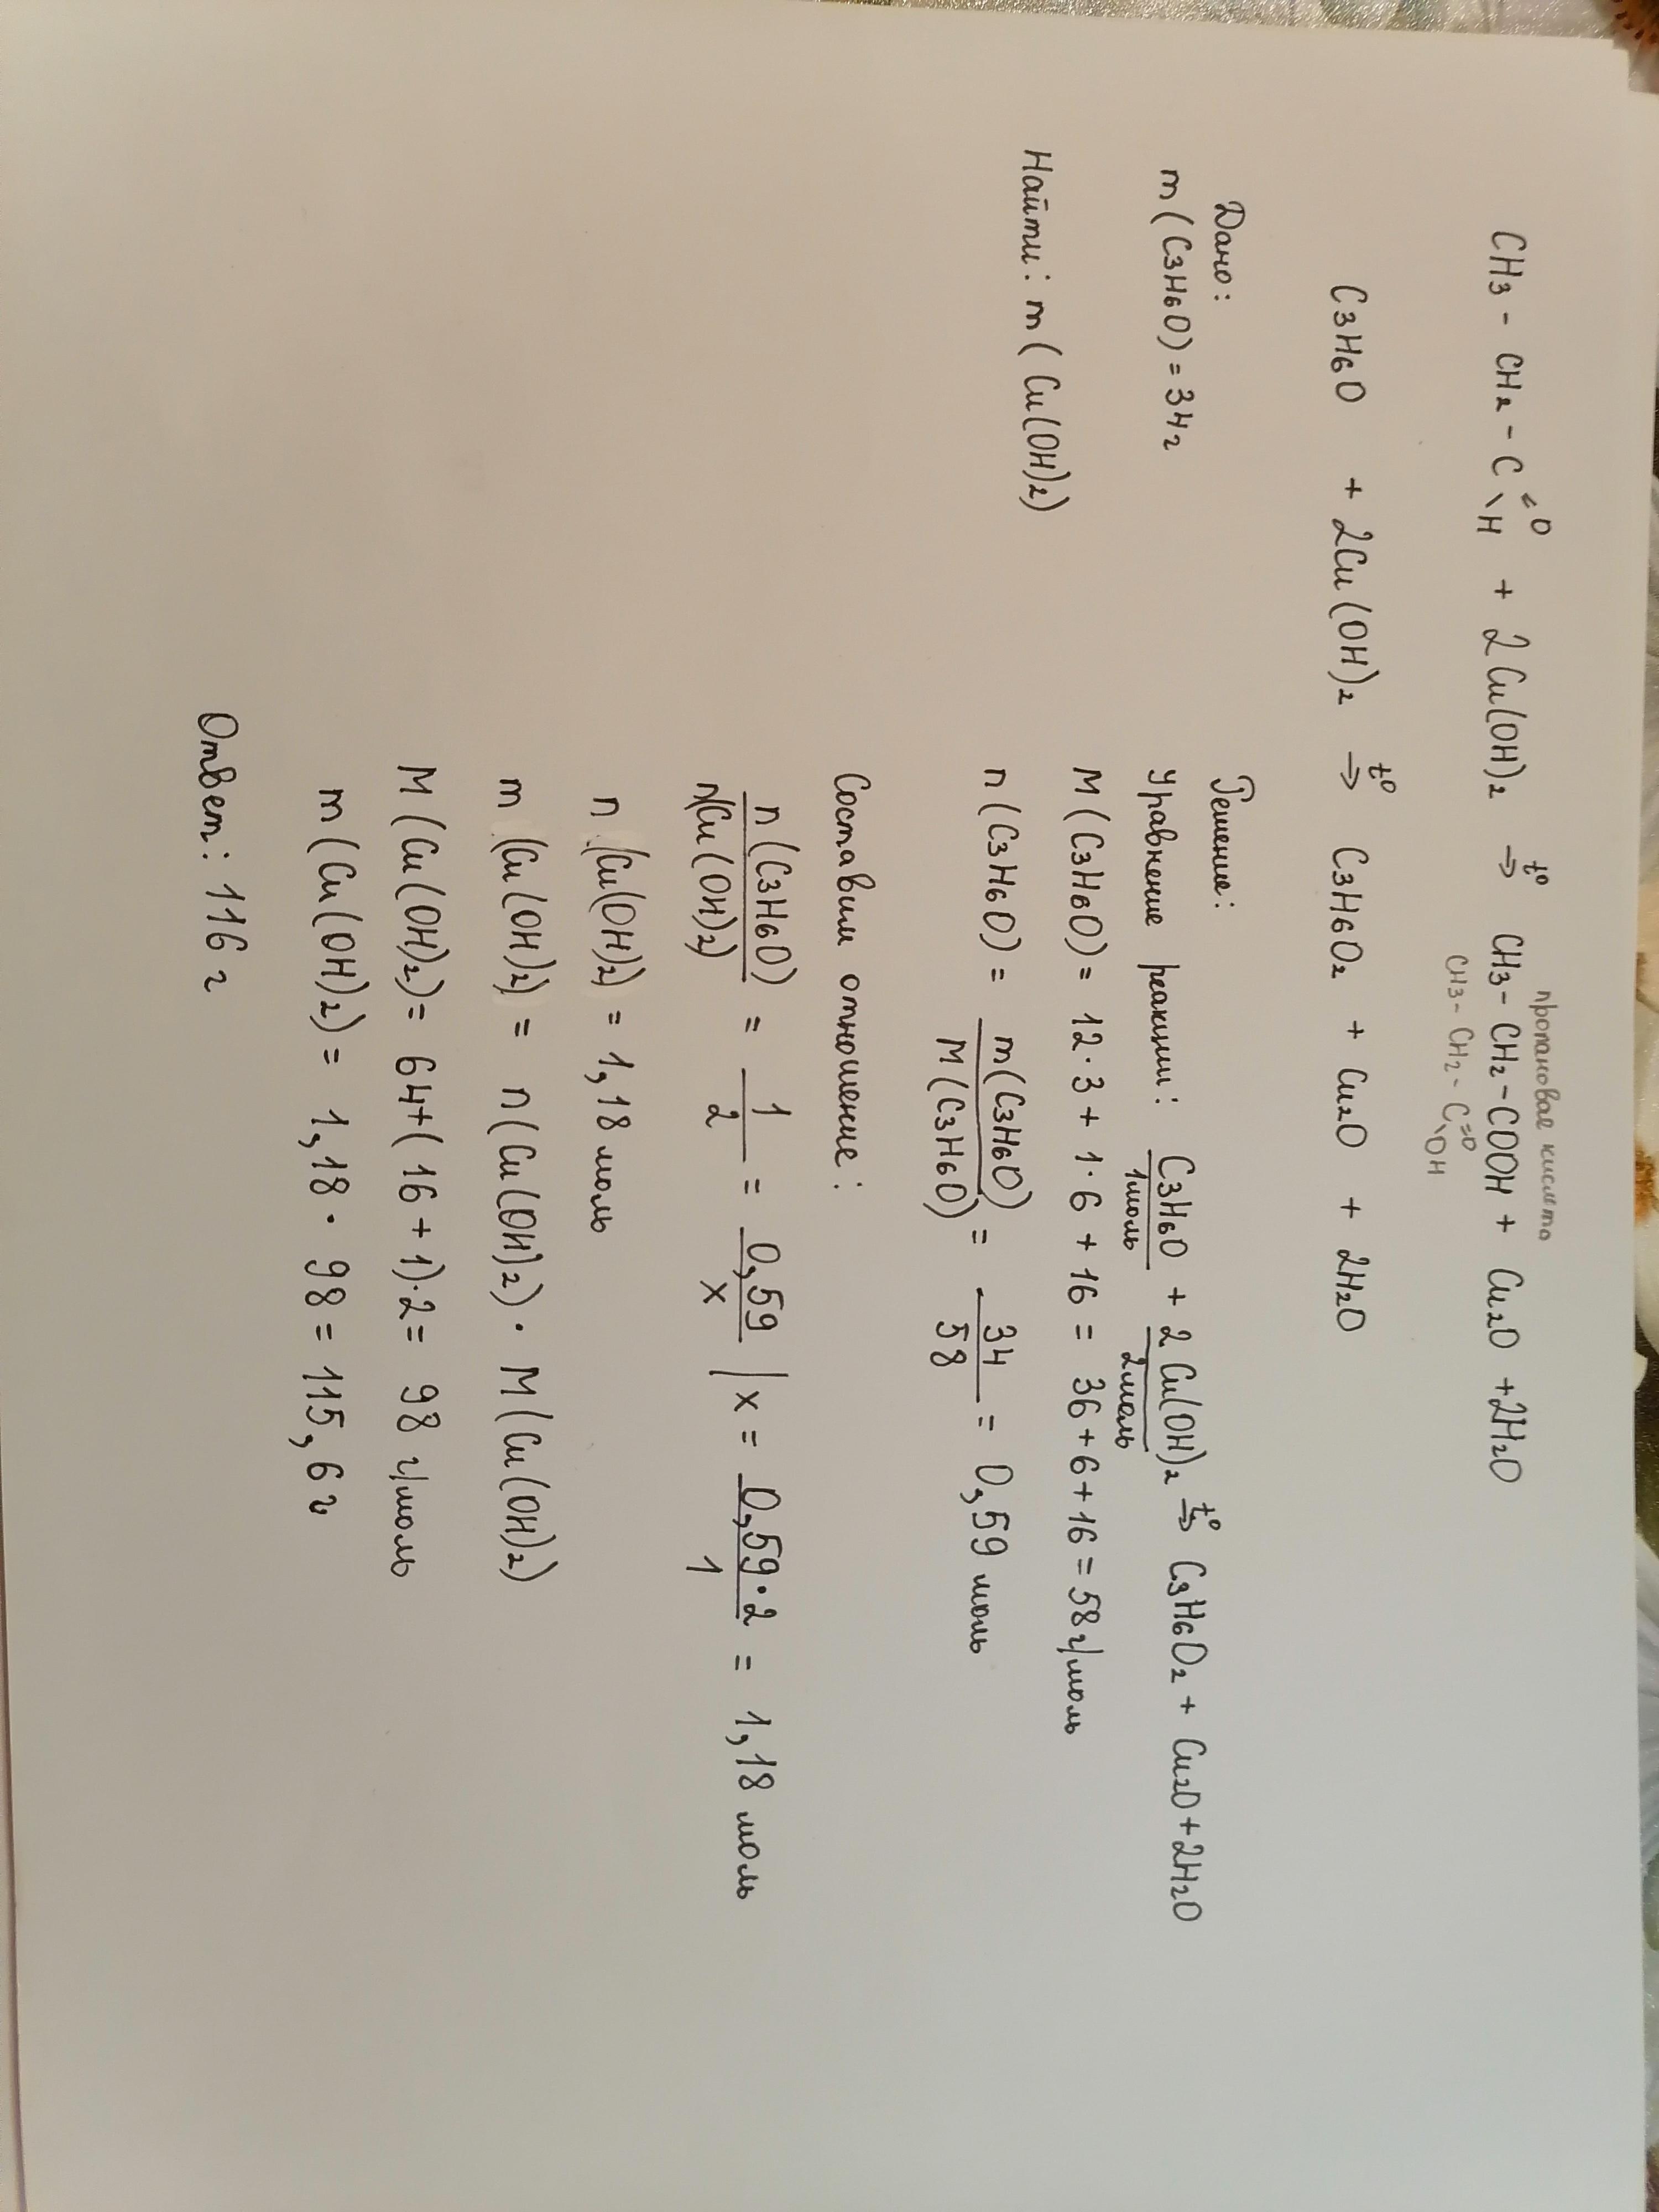 пропановая кислота
CH3 - CH2 - C =O \H + 2Cu(OH)2 t° → CH3 - CH2 - COOH + Cu2O + 2H2O
CH3 - CH2 - C =O \OH
C3H6O + 2Cu(OH)2 t° → C3H6O2 + Cu2O + 2H2O
Дано:
m(C3H6O) = 34г
Найти: m(Cu(OH)2)
Решение:
Уравнение реакции: C3H6O + 2Cu(OH)2 t° → C3H6O2 + Cu2O + 2H2O
1моль 2моль
M(C3H6O) = 12·3 + 1·6 + 16 = 36 + 6 + 16 = 58г/моль
n(C3H6O) = m(C3H6O) / M(C3H6O) = 34 / 58 = 0,59 моль
Составим отношение:
n(C3H6O) / n(Cu(OH)2) = 1 / 2 = 0,59 / x | x = 0,59·2 / 1 = 1,18 моль
n (Cu(OH)2) = 1,18 моль
m (Cu(OH)2) = n(Cu(OH)2) · M(Cu(OH)2)
M(Cu(OH)2) = 64+(16+1)·2 = 98 г/моль
m(Cu(OH)2) = 1,18 · 98 = 115,6 г
Ответ: 116 г